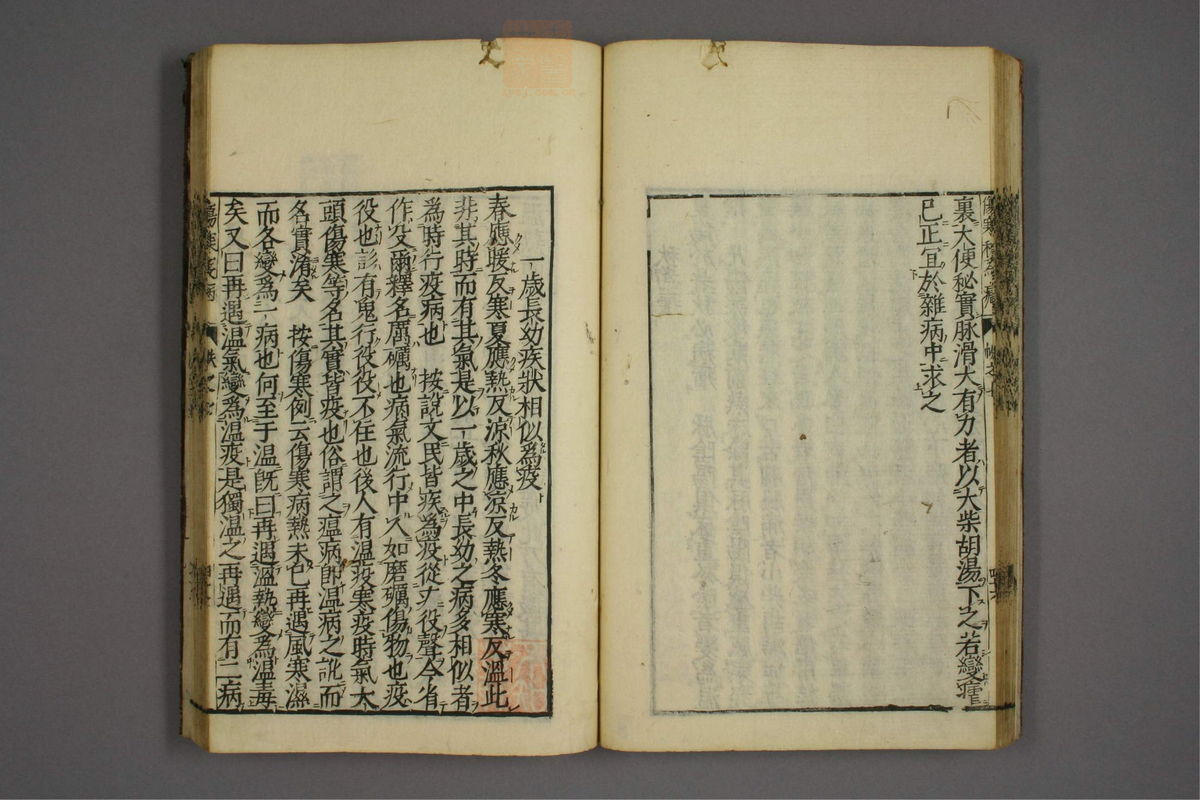 裏大便秘實脉滑大有力者以大柴胡湯下之若變瘧
已正宜於雜病中求之
一歳長幼疾狀相似爲疫
春應暖反寒夏應熱反涼秋應涼反熱冬應寒反溫此
非其時而有其氣是以一歳之中長幼之病多相似者
爲時行疫病也 按說文民皆疾爲疫從疒役聲今省
作殳爾釋名厲礪也病氣流行中人如磨礪傷物也疫
役也言有鬼行役役不住也後人有温疫寒疫時氣大
頭傷寒等名其實皆疫也俗謂之瘟病卽温病之訛而
名實淆矣 按傷寒例云傷寒病熱未已再遇風寒濕
而各變爲一病也何至于温旣曰再遇温熱變爲温毒
矣又曰再遇温氣變爲温疫是獨温之再遇而有二病